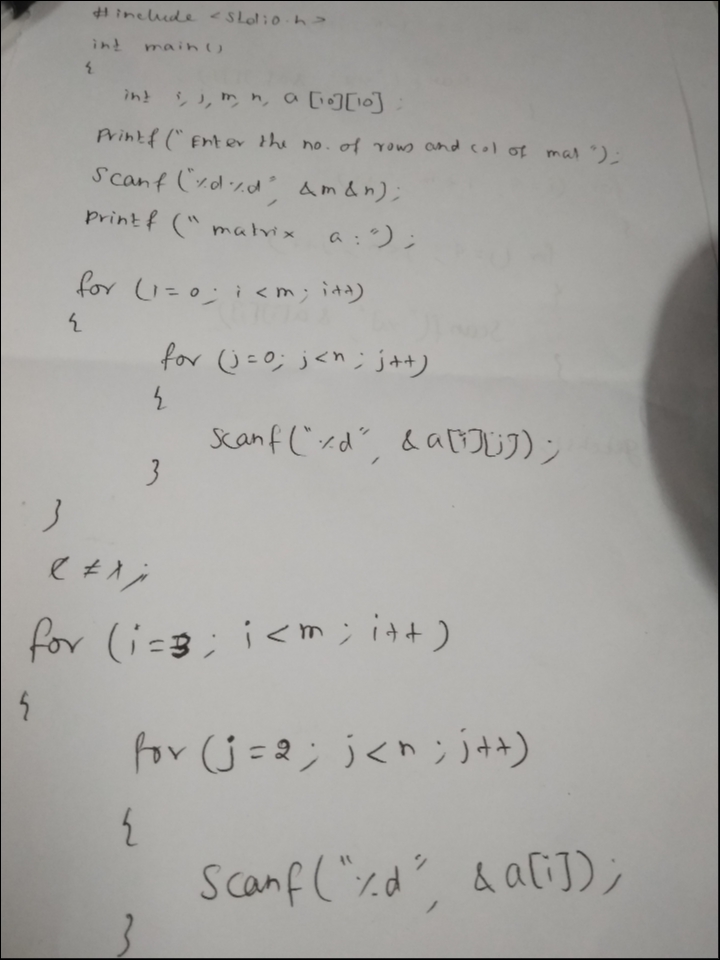 #include <stdio.h>
int main()
{
int i, j, m, n, a [10][10];
Printf(" Enter the no. of rows and col of mat ");
Scanf ("%d%d", &m &n);
printf (" matrix a : ");
for (i = 0; i < m; i++)
{
for (j = 0; j < n; j++)
{
Scanf("%d", & a[i][j]);
}
}
for (i = 3; i < m; i++)
{
for (j = 2; j < n; j++)
{
Scanf("%d", & a[i]);
}